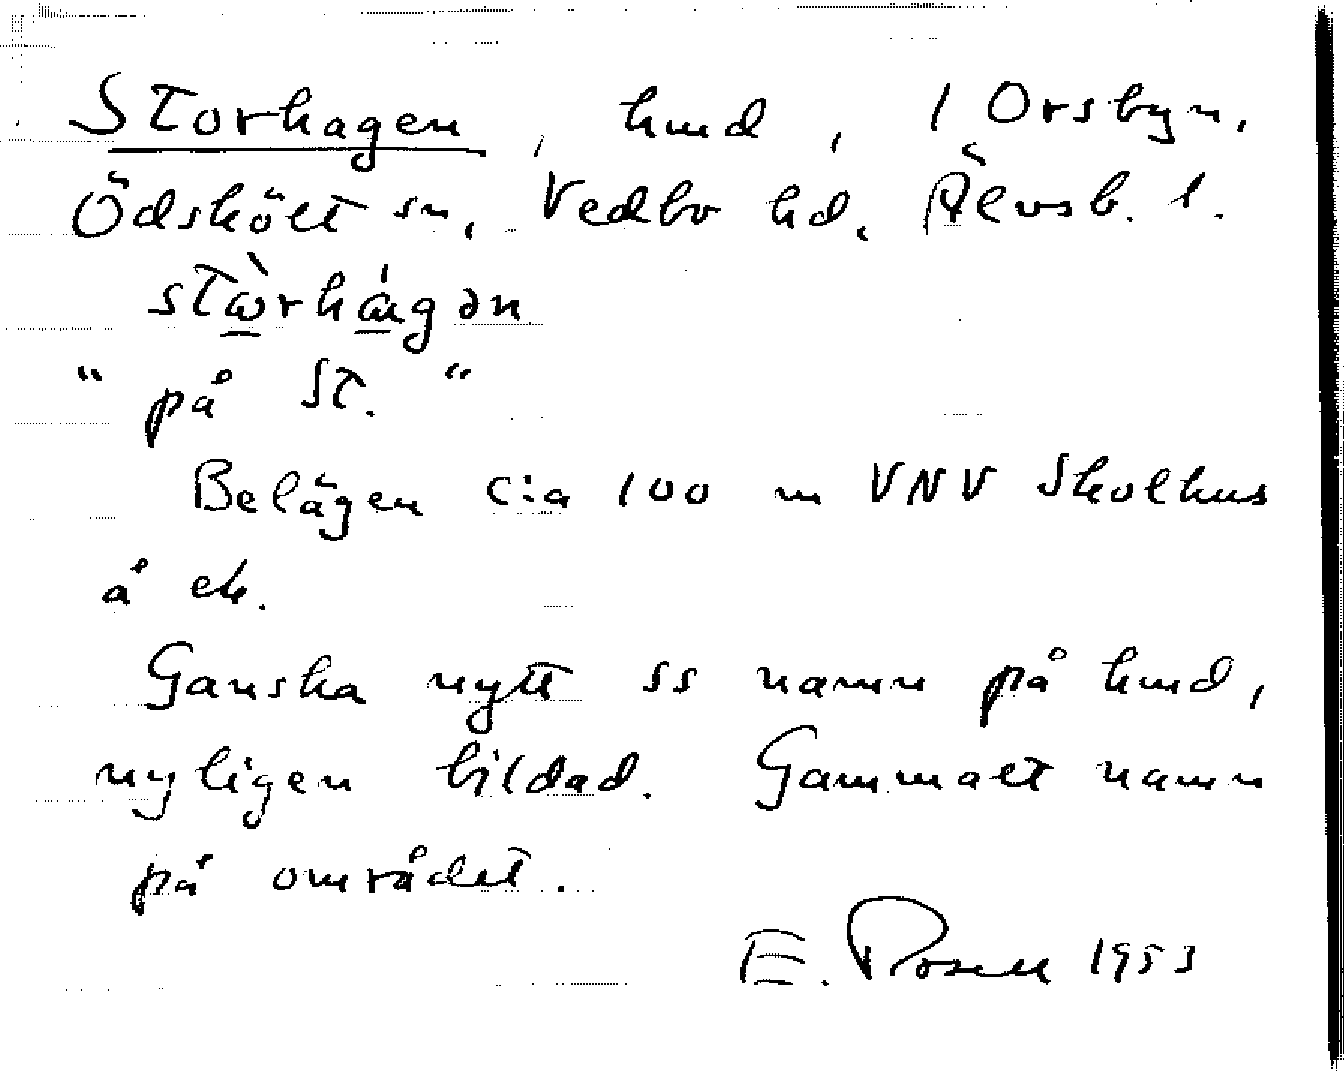 Storhagen, hmd, i Orsbyn,
Ödskölt sn, Vedbo hd, Älvsb. l.
stὼrhágən
"på St."
Belägen c:a 100 m VNV Skolhus
å ek.
Ganska nytt ss namn på hmd,
nyligen bildad. Gammalt namn
på området.
E. Rosell 1953